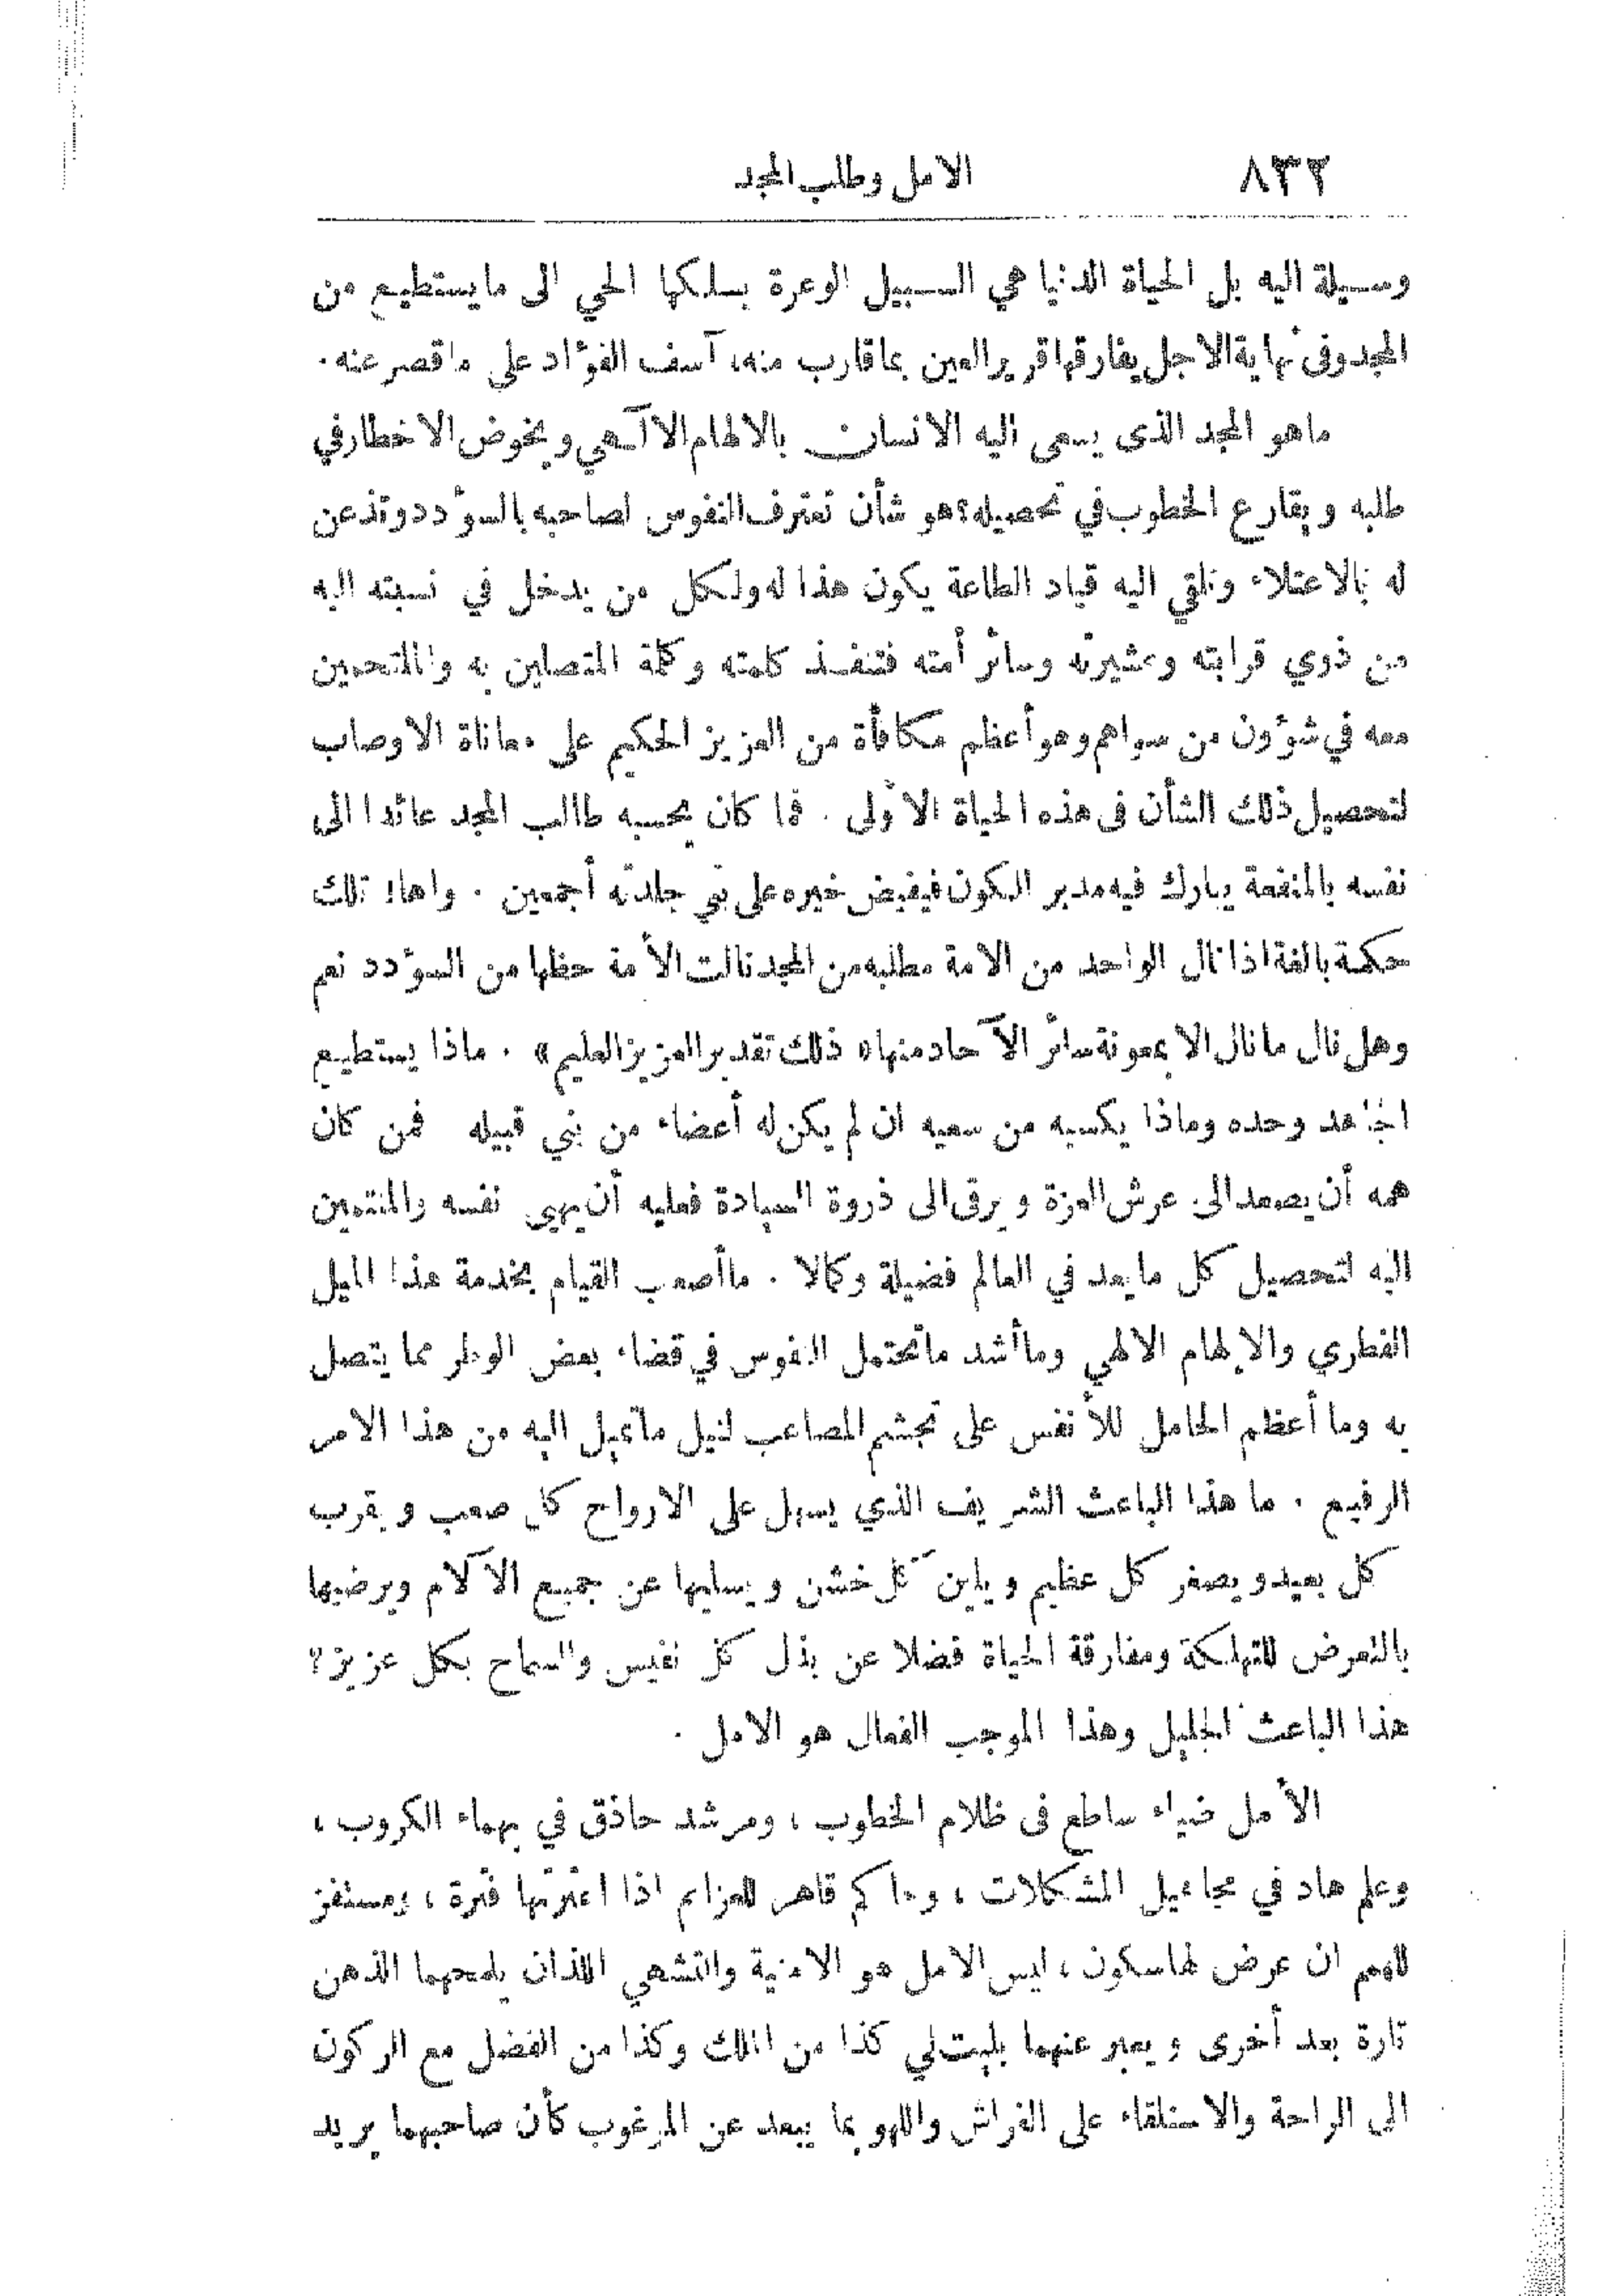 ٨٣٢ الامل وطلب المجد
وسيلة اليه بل الحياة الدنيا هي السبيل الوعرة يسلكها الحي الى ما يستطيع من
المجد وفى نهاية الاجل يفارقها قرير العين بما قارب منه، آسف الفؤاد على ما قصر عنه.
ماهو المجد الذى يسعى اليه الانسان بالالهام الالهي ويخوض الاخطار في
طلبه ويقارع الخطوب في تحصيله؟ هو شأن تعترف النفوس لصاحبه بالسؤدد وتذعن
له بالاعتلاء وتلقي اليه قياد الطاعة يكون هذا له ولكل من يدخل في نسبته اليه
من ذوي قرابته وعشيرته وسائر أمته فتنفذ كلمته وكلمة المتصلين به والملتحمين
معه في شؤون من سواهم وهو أعظم مكافأة من العزيز الحكيم على معاناة الاوصاب
لتحصيل ذلك الشأن فى هذه الحياة الأولى . فما كان يحسبه طالب المجد عائدا الى
نفسه بالمنفعة يبارك فيه مدبر الكون فيفيض خيره على بني جلدته أجمعين . واها! تلك
حكمة بالغة اذا نال الواحد من الامة مطلبه من المجد نالت الأمة حظها من السؤدد نعم
وهل نال ما نال الا بمعونة سائر الآحاد منها « ذلك تقدير العزيز العليم » . ماذا يستطيع
المجاهد وحده وماذا يكسبه من سعيه ان لم يكن له أعضاء من بني قبيله فمن كان
همه أن يصعد الى عرش العزة ويرقى الى ذروة السيادة فعليه أن يهيئ نفسه والمنتمين
اليه لتحصيل كل ما يعد في العالم فضيلة وكمالا . ما أصعب القيام بخدمة هذا الميل
الفطري والإلهام الالهي وما أشد ما تحتمل النفوس في قضاء بعض الوطر مما يتصل
به وما أعظم الحامل للأنفس على تجشم المصاعب لنيل ما تميل اليه من هذا الامر
الرفيع . ما هذا الباعث الشريف الذي يسهل على الارواح كل صعب ويقرب
كل بعيد ويصغر كل عظيم ويلين كل خشن ويسليها عن جميع الآلام ويرضيها
بالتعرض للتهلكة ومفارقة الحياة فضلا عن بذل كل نفيس والسماح بكل عزيز؟
هذا الباعث الجليل وهذا الموجب الفعال هو الامل .
الأمل ضياء ساطع فى ظلام الخطوب ، ومرشد حاذق في بهماء الكروب ،
وعلم هاد في مجاهيل المشكلات ، وحاكم قاهر للعزائم اذا اعترتها فترة ، ومستفز
للهمم ان عرض لها سكون ، ليس الامل هو الامنية والتشهي اللذان يلمحهما الذهن
تارة بعد أخرى ويعبر عنهما بليت لي كذا من الملك وكذا من الفضل مع الركون
الى الراحة والاستلقاء على الفراش واللهو بما يبعد عن المرغوب كأن صاحبهما يريد